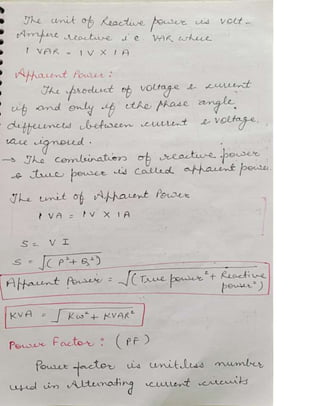 The unit of Reactive power is volt-
Ampere reactive i.e VAR where
1 VAR = 1V X 1A
Apparent Power:
The product of voltage & current
if and only if the phase angle
differences between current & voltage.
are ignored.
→ The combination of reactive power
& true power is called apparent power.
The unit of Apparent Power
1 VA = 1V X 1A
S = V I
S = √(P²+Q²)
Apparent Power = √(True power² + Reactive
power²)
KVA = √KW²+KVAR²
Power Factor : (PF)
Power factor is unitless number
used in Alternating current circuits